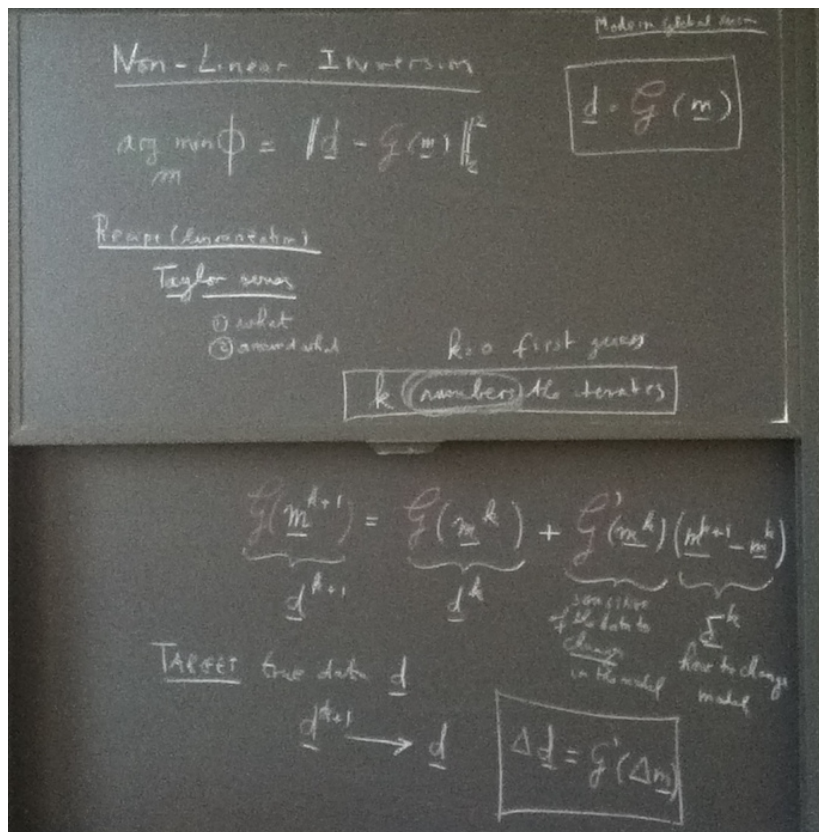 Modern global seism
Non-Linear Inversion
d = G(m)
arg min Φ = ‖d - G(m)‖₂²
m
Recipe (linearization)
Taylor series
① what
② around what
k=0 first guess
k numbers the iterates
G(m^{k+1}) = G(m^k) + G'(m^k)(m^{k+1} - m^k)
d^{k+1} d^k
of the data to
change
in the model
how to change
model
TARGET true data d
d^{k+1} → d
Δd = G'(Δm)